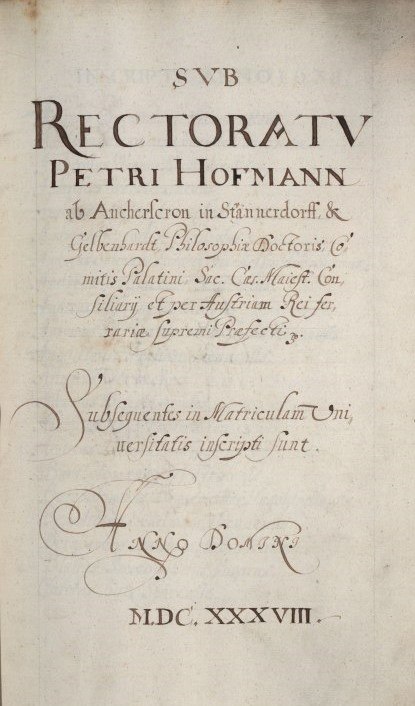 SVB
RECTORATV
PETRI HOFMANN
ab Ancherscron in Stännerdorff, &
Gelbenhardt, Philosophiæ Doctoris, Co,
mitis Palatini, Sac. Cæs. Maiest. Con,
siliarij et per Austriam Rei fer,
rariæ supremi Præfecti
Subsequentes in Matriculam Uni,
uersitatis inscripti sunt.
ANNO DOMINI
M.DC.XXXVIII.